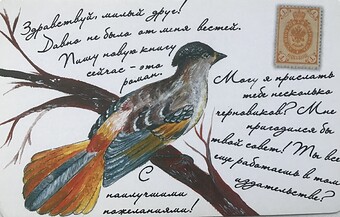 Здравствуй, милый друг!
Давно не было от меня вестей.
Пишу новую книгу
сейчас - это
роман.
Могу я прислать
тебе несколько
черновиков? Мне
пригодился бы
твой совет! Ты все
еще работаешь в том
издательстве?
С
наилучшими
пожеланиями!